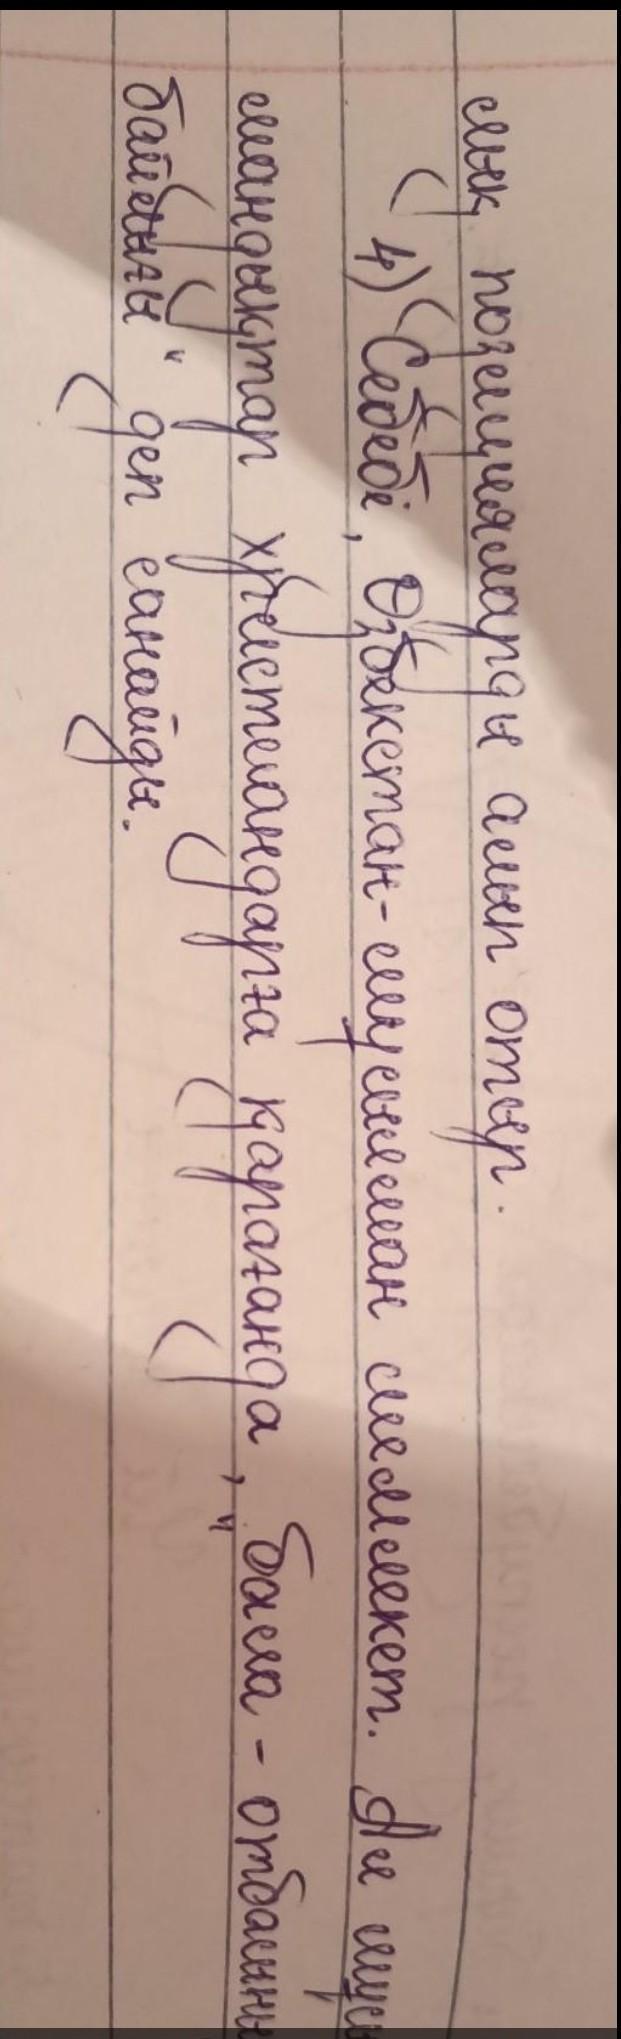 лық позицияларды алып отыр.
4) Себебі, Өзбекстан-мұсылман мемлекет. Ал мұсы
мандықтар христиандарға қарағанда, "бала - отбасыны
байлығы" деп санайды.